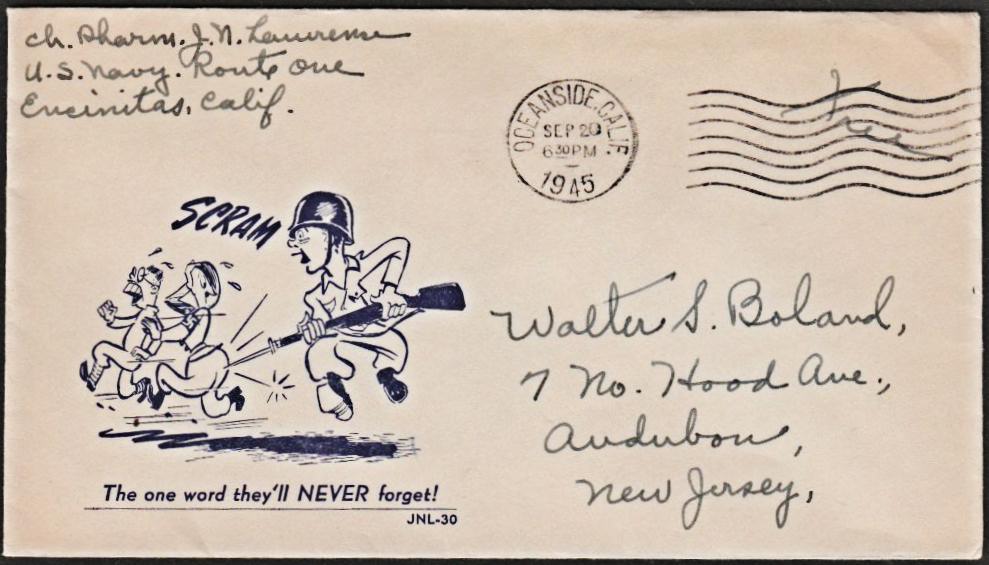 Ch. Pharm. J. N. Lawrence
U.S. Navy. Route One
Encinitas, Calif.
OCEANSIDE, CALIF.
SEP 20
6 30 PM
1945
Free
SCRAM
Walter S. Boland,
7 No. Hood Ave.,
Audubon,
New Jersey,
The one word they'll NEVER forget!
JNL-30